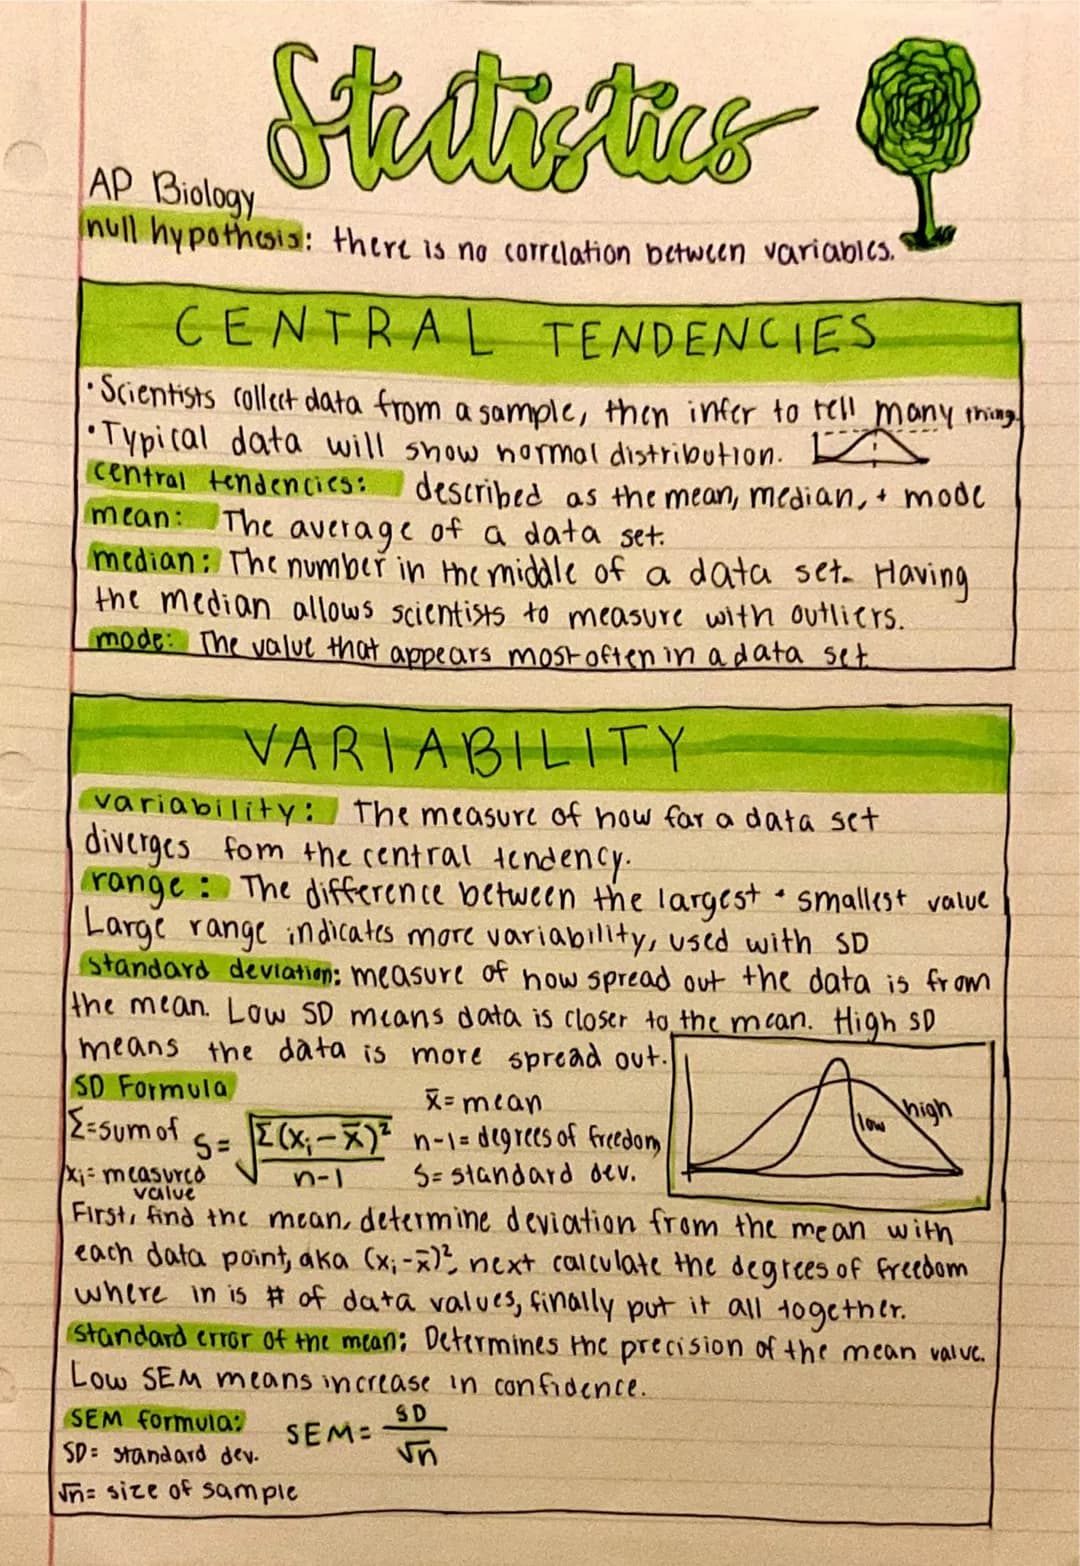 Statistics
AP Biology
null hypothesis: there is no correlation between variables.
CENTRAL TENDENCIES
• Scientists collect data from a sample, then infer to tell many thing
• Typical data will show normal distribution.
central tendencies: described as the mean, median, + mode
mean: The average of a data set.
median: The number in the middle of a data set. Having
the median allows scientists to measure with outliers.
mode: The value that appears most often in a data set
VARIABILITY
variability: The measure of how far a data set
diverges fom the central tendency.
range: The difference between the largest + smallest value
Large range indicates more variability, used with SD
standard deviation: measure of how spread out the data is from
the mean. Low SD means data is closer to the mean. High SD
means the data is more spread out.
low high
SD Formula
x̄ = mean
Σ=sum of S= √Σ(xᵢ-x̄)²/n-1 n-1= degrees of freedom
xᵢ= measured value
S= standard dev.
First, find the mean, determine deviation from the mean with
each data point, aka (xᵢ-x̄)², next calculate the degrees of freedom
where in is # of data values, finally put it all together.
standard error of the mean: Determines the precision of the mean value.
Low SEM means increase in confidence.
SEM formula: SEM= SD/√n
SD= standard dev.
√n= size of sample